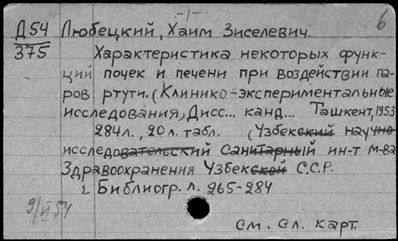 -1-
6
Д54 Любецкий, Хаим Зиселевич.
375 Характеристика некоторых функ-
ций почек и печени при воздействии па-
ров ртути. (Клинико-экспериментальные
исследования) Дисс... канд... Ташкент, 1953
284л., 20л. табл. (Узбекский научно
исследовательский санитарный ин-т м-ва
Здравоохранения Узбекской С.С.Р.
Библиогр. л. 265-284
9/VI 54
См. сл. карт.